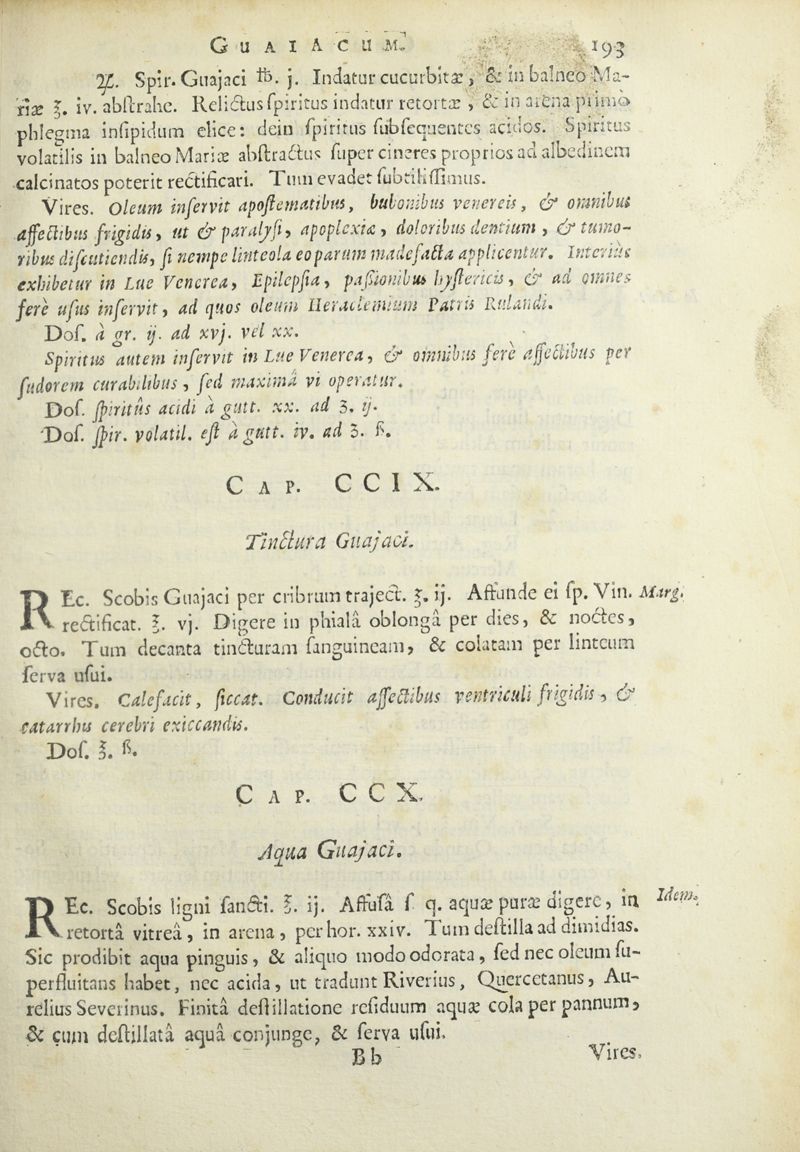 GUAIACUM. 193
♃. Spir. Guajaci ℔. j. Indatur cucurbitæ, & in balneo Ma-
riæ ℥. iv. abſtrahe. Relictus ſpiritus indatur retortæ, & in arena primo
phlegma inſipidum elice: dein ſpiritus ſubſequentes acidos. Spiritus
volatilis in balneo Mariæ abſtractus ſuper cineres proprios ad albedinem
calcinatos poterit rectificari. Tum evadet ſubtiliſſimus.
Vires. Oleum inſervit apoſtematibus, bubonibus venereis, & omnibus
affectibus frigidis, ut & paralyſi, apoplexiæ, doloribus dentium, & tumo-
ribus diſcutiendis, ſi nempe linteola eo parum madefacta applicentur. Interius
exhibetur in Lue Venerea, Epilepſia, paſſionibus hyſtericis, & ad omnes
fere uſus inſervit, ad quos oleum Heraclemium Patris Rulandi.
Doſ. à gr. ij. ad xvj. vel xx.
Spiritus autem inſervit in Lue Venerea, & omnibus ferè affectibus per
ſudorem curabilibus, ſed maximâ vi operatur.
Doſ. ſpiritûs acidi à gutt. xx. ad ʒ. ij.
Doſ. ſpir. volatil. eſt à gutt. iv. ad ʒ. ß.
CAP. CCIX.
Tinctura Guajaci.
REc. Scobis Guajaci per cribrum traject. ℥. ij. Affunde ei ſp. Vin. Marg.
rectificat. ℥. vj. Digere in phialâ oblongâ per dies, & noctes,
octo. Tum decanta tincturam ſanguineam, & colatam per linteum
ſerva uſui.
Vires. Calefacit, ſiccat. Conducit affectibus ventriculi frigidis, &
catarrhis cerebri exiccandis.
Doſ. ℥. ß.
CAP. CCX.
Aqua Guajaci.
REc. Scobis ligni ſancti. ℥. ij. Affuſâ ſ q. aquæ puræ digere, in Idem.
retortâ vitreâ, in arena, per hor. xxiv. Tum deſtilla ad dimidias.
Sic prodibit aqua pinguis, & aliquo modo odorata, ſed nec oleum ſu-
perfluitans habet, nec acida, ut tradunt Riverius, Quercetanus, Au-
relius Severinus. Finitâ deſtillatione reſiduum aquæ cola per pannum,
& cum deſtillatâ aquâ conjunge, & ſerva uſui.
Bb Vires,